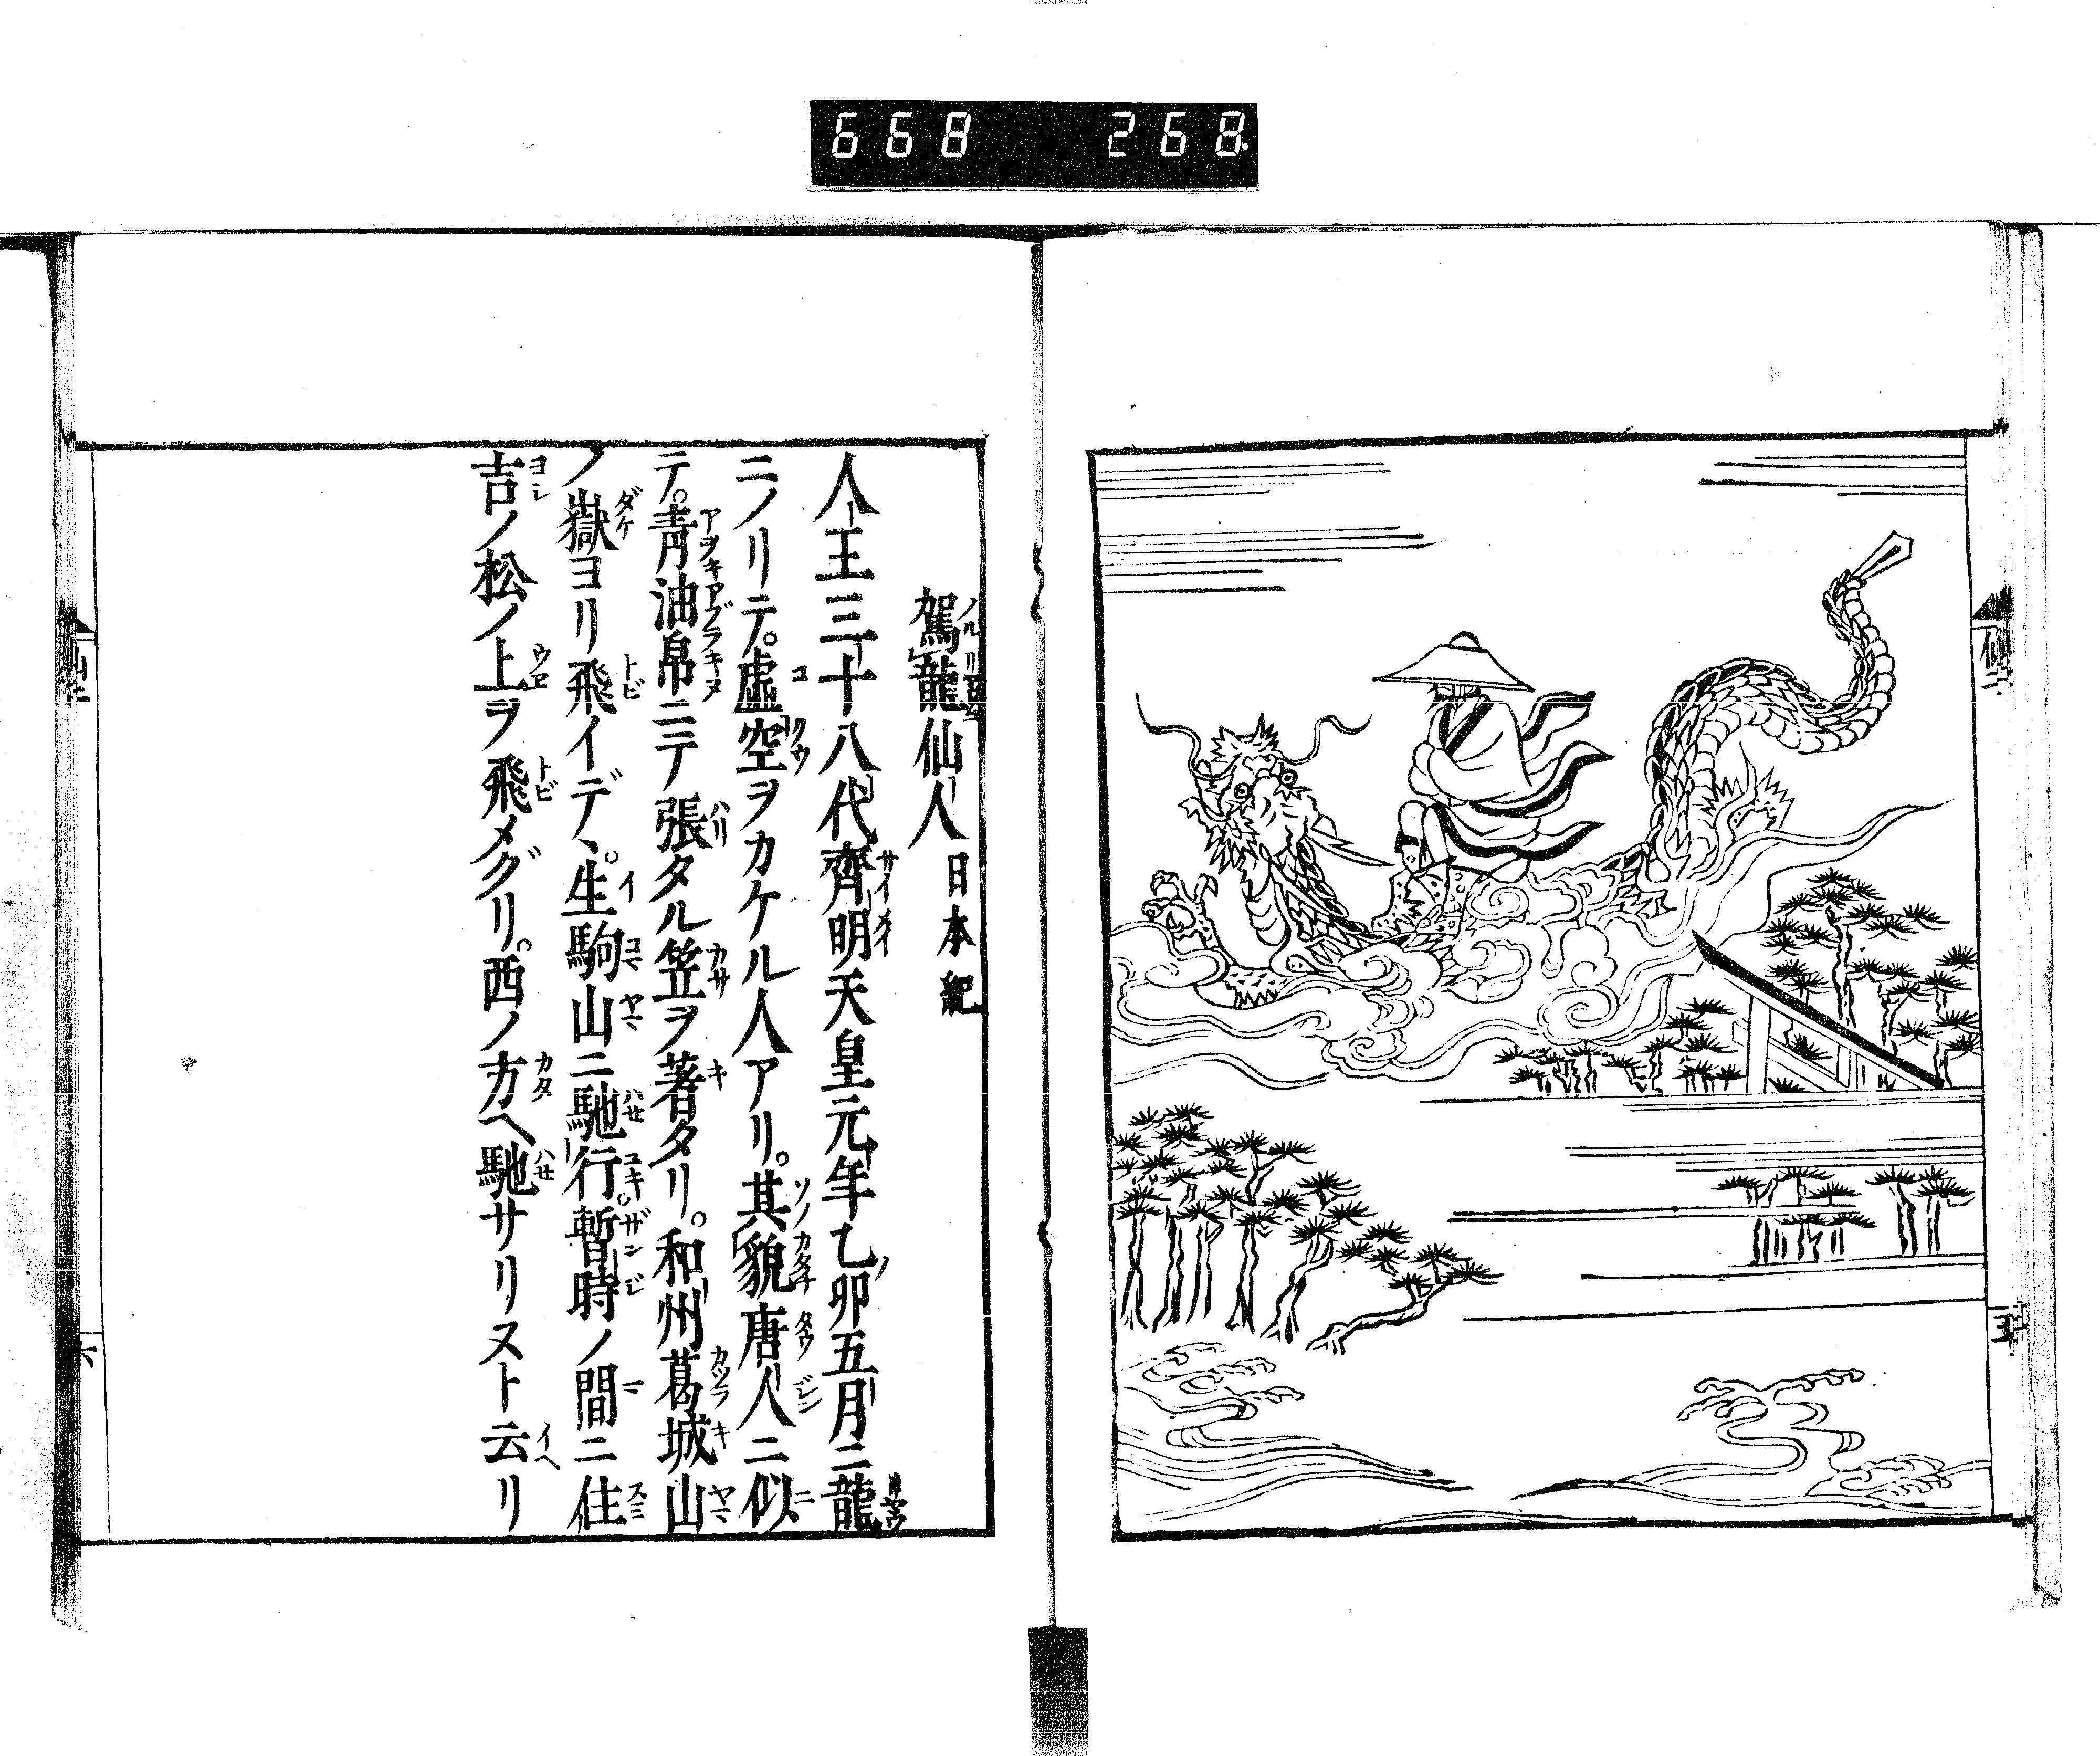 668 268
駕龍仙人 日本紀
人王三十八代齊明天皇元年乙卯五月ニ龍
ニノリテ。虚空ヲカケル人アリ。其貌唐人ニ似
テ。青油帛ニテ張タル笠ヲ著タリ。和州葛城山
ノ嶽ヨリ飛イデヽ。生駒山ニ馳行。暫時ノ間ニ住
吉ノ松ノ上ヲ飛メグリ。西ノ方ヘ馳サリヌト云リ
六